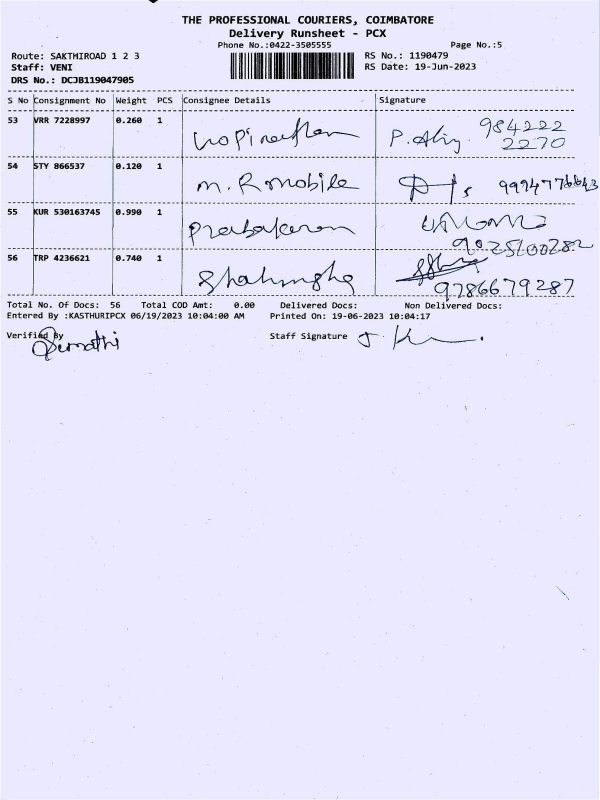 THE PROFESSIONAL COURIERS, COIMBATORE
Delivery Runsheet - PCX
Phone No.:0422-3505555 Page No.:5
Route: SAKTHIROAD 1 2 3 RS No.: 1190479
Staff: VENI RS Date: 19-Jun-2023
DRS No.: DCJB119047905
S No Consignment No Weight PCS Consignee Details Signature
53 VRR 7228997 0.260 1 984222
2270
54 STY 866537 0.120 1 M. R mobile
55 KUR 530163745 0.990 1 Prabakaran
56 TRP 4236621 0.740 1
9786679287
Total No. Of Docs: 56 Total COD Amt: 0.00 Delivered Docs: Non Delivered Docs:
Entered By :KASTHURIPCX 06/19/2023 10:04:00 AM Printed On: 19-06-2023 10:04:17
Verified By Staff Signature